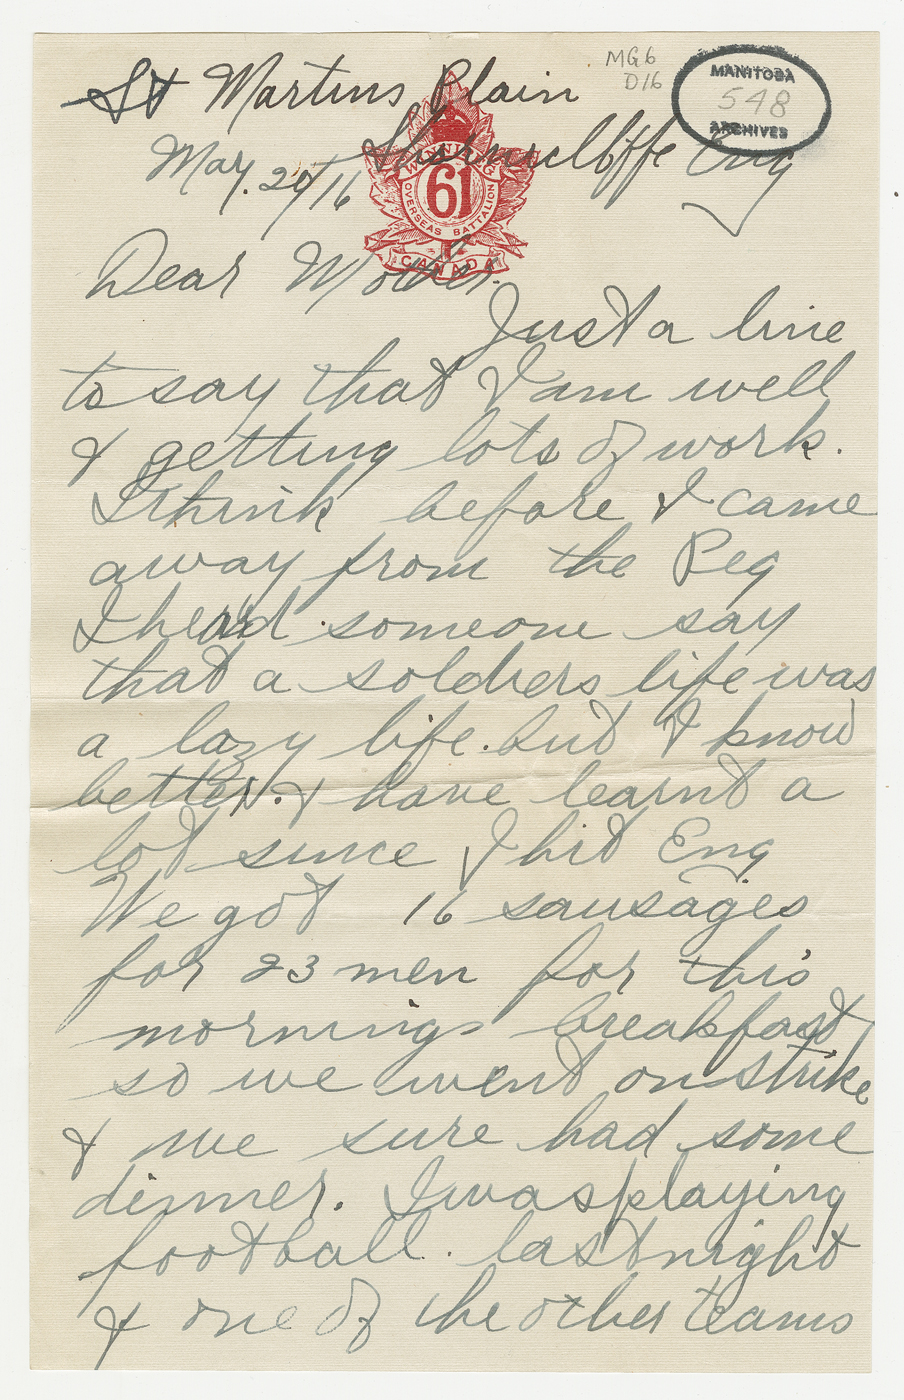 MG6
D16
MANITOBA
548
ARCHIVES
St Martins Plain
Shorncliffe Eng
May. 20/16
WINNIPEG
61
OVERSEAS BATTALION
CANADA
Dear Mother.
Just a line
to say that I am well
& getting lots of work.
I think before I came
away from the Peg
I heard someone say
that a soldiers life was
a lazy life. but I know
better. & have learnt a
lot since I hit Eng
We got 16 sausages
for 23 men for this
mornings breakfast
so we went on strike
& we sure had some
dinner. I was playing
football. last night
& one of the other teams